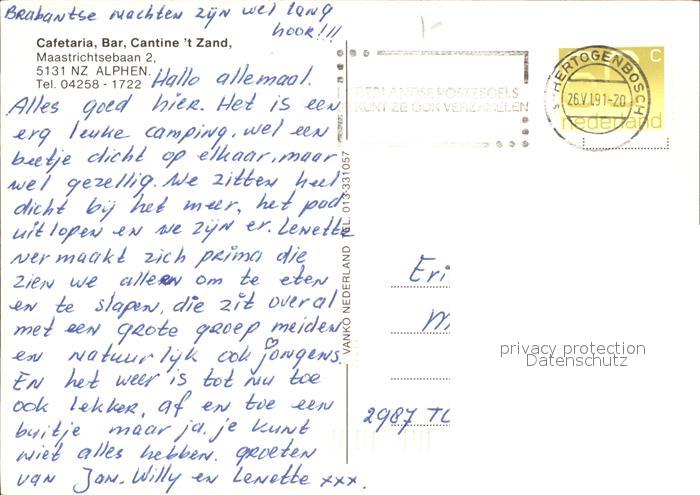 Brabantse nachten zijn wel lang
hoor!!!
Cafetaria, Bar, Cantine 't Zand,
Maastrichtsebaan 2,
5131 NZ ALPHEN.
Tel. 04258 - 1722
Hallo allemaal.
Alles goed hier. Het is een
erg leuke camping, wel een
beetje dicht op elkaar, maar
wel gezellig. We zitten heel
dicht bij het meer, het pad
uitlopen en we zijn er. Lenette
vermaakt zich prima die
zien we alleen om te eten
en te slapen, die zit overal
met een grote groep meiden
en natuurlijk ook jongens.
En het weer is tot nu toe
ook lekker, af en toe een
buitje maar ja, je kunt
niet alles hebben. groeten
van Jan. Willy en Lenette xxx.
VANKO NEDERLAND TEL. 013-331057
NEDERLANDSE POSTZEGELS
KUNT ZE OOK VERZAMELEN
'S-HERTOGENBOSCH
26.V.91-20
c
nederland
Eri
M
2987 TC
privacy protection
Datenschutz